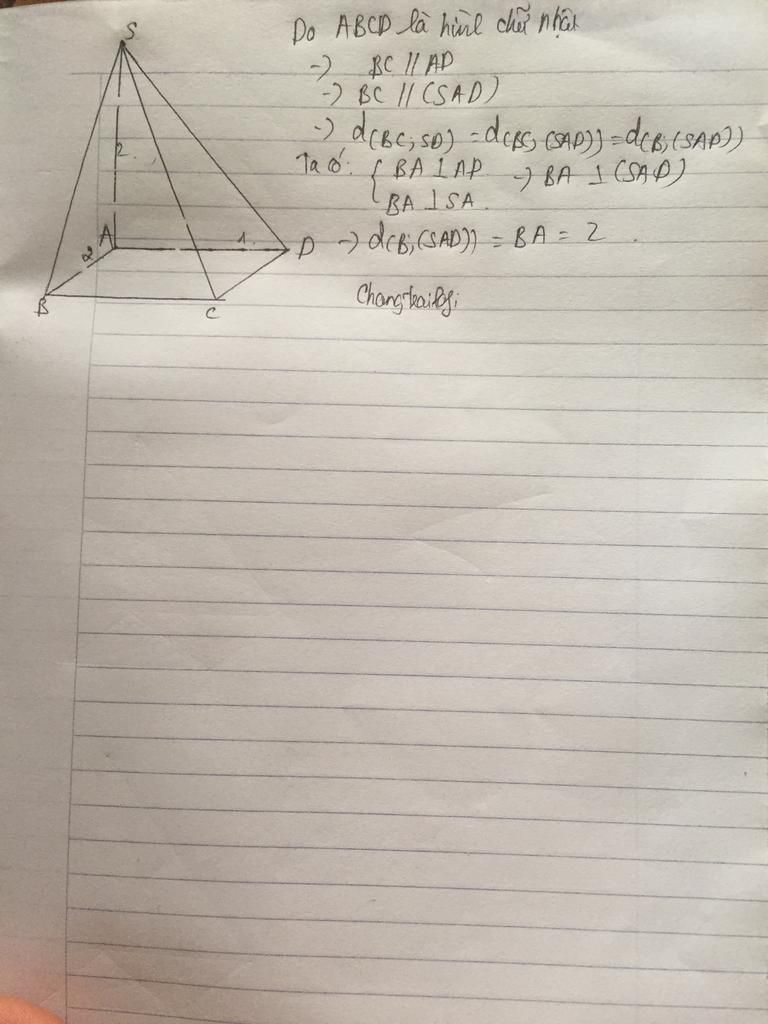 S
2
A
2
1
D
B
C
Do ABCD là hình chữ nhật
-> BC // AD
-> BC // (SAD)
-> d(BC; SD) = d(BC; (SAD)) = d(B; (SAD))
Ta có: { BA ⊥ AD -> BA ⊥ (SAD)
BA ⊥ SA
-> d(B; (SAD)) = BA = 2 .